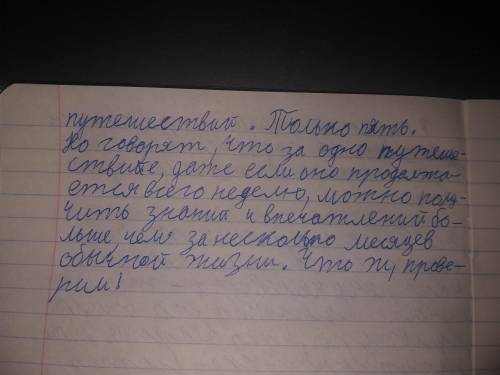 путешествий. Только пять.
Но говорят, что за одно путеше-
ствие, даже если оно продолжа-
ется всего неделю, можно полу-
чить знаний и впечатлений бо-
льше, чем за несколько месяцев
обычной жизни. Что ж, прове-
рим!